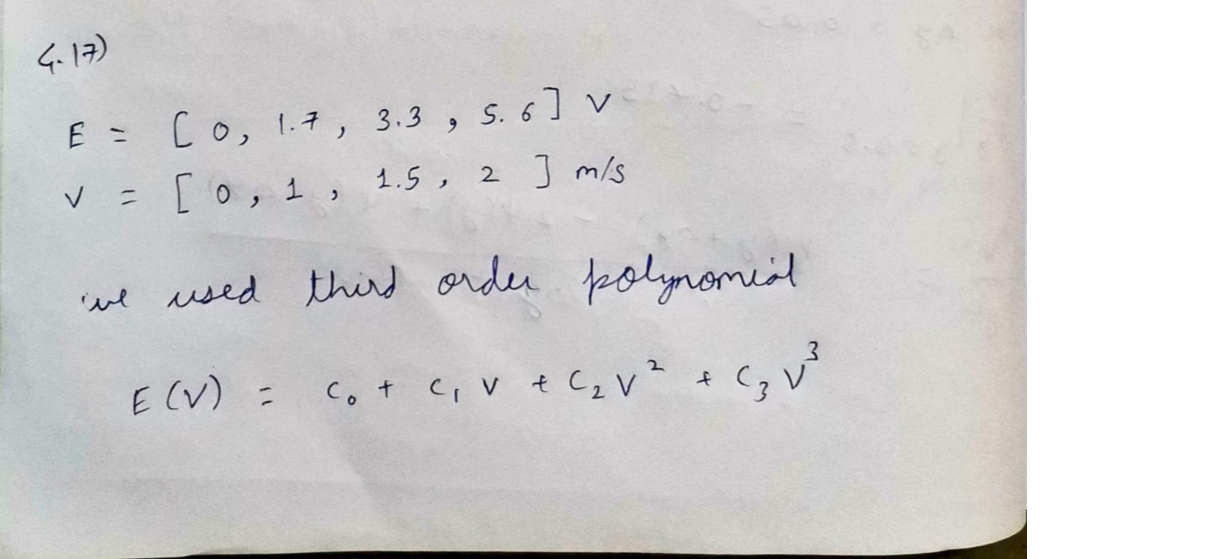 4.17)
E = [ 0, 1.7, 3.3, 5.6 ] V
V = [ 0, 1, 1.5, 2 ] m/s
we used third order polynomial
E (V) = C₀ + C₁ V + C₂ V² + C₃ V³